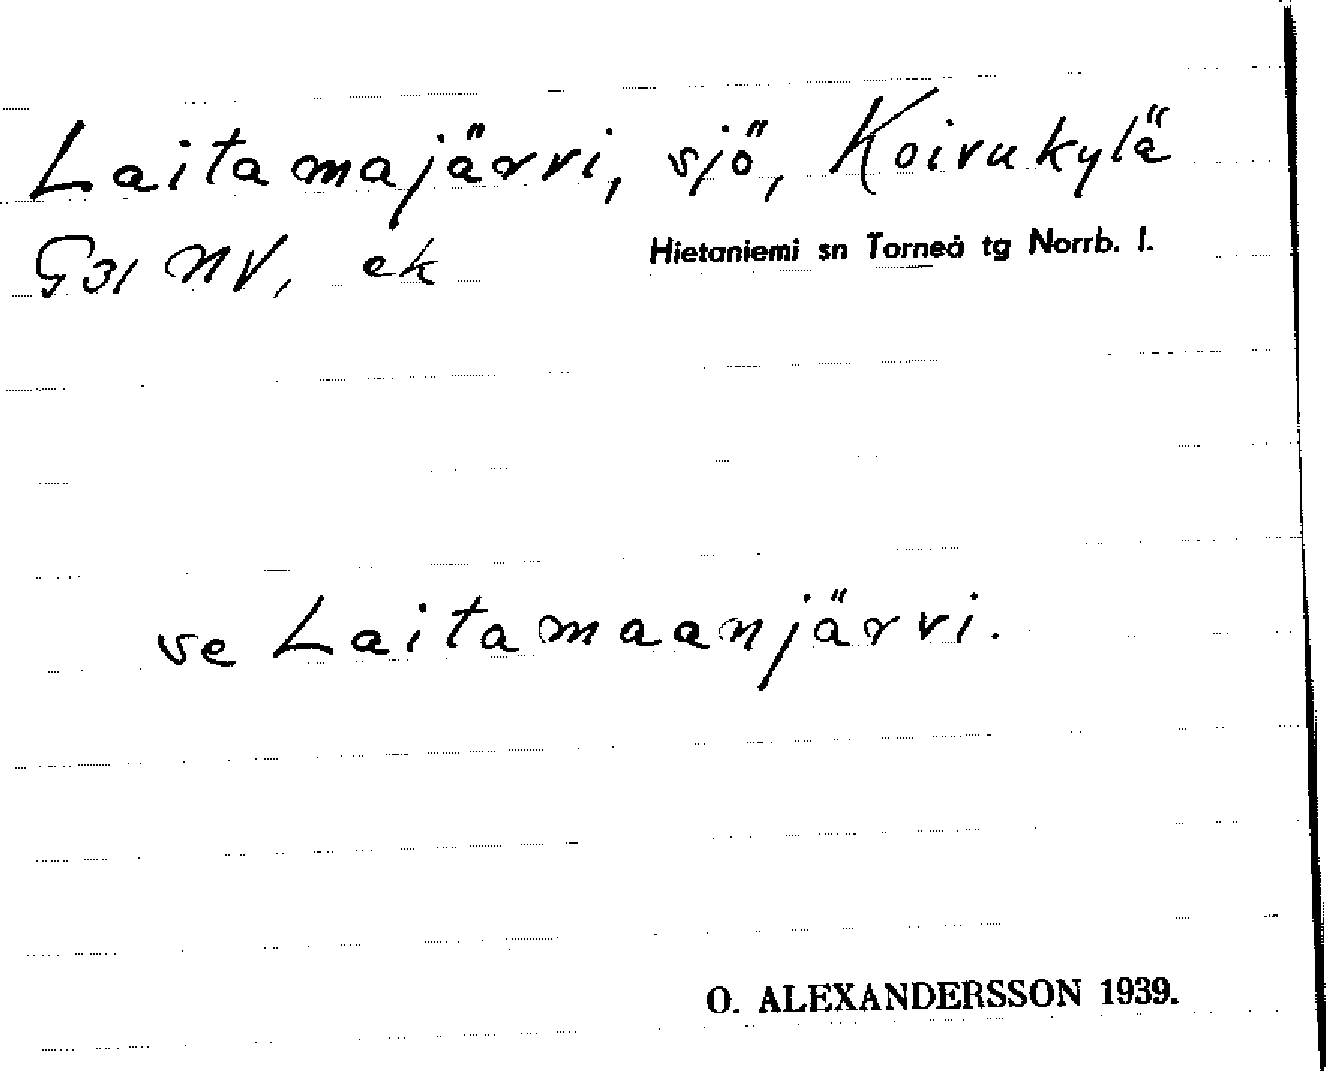 Laitamajärvi, sjö, Koivukylä
G31 NV, ek Hietaniemi sn Torneå tg Norrb. l.
se Laitamaanjärvi.
O. ALEXANDERSSON 1939.